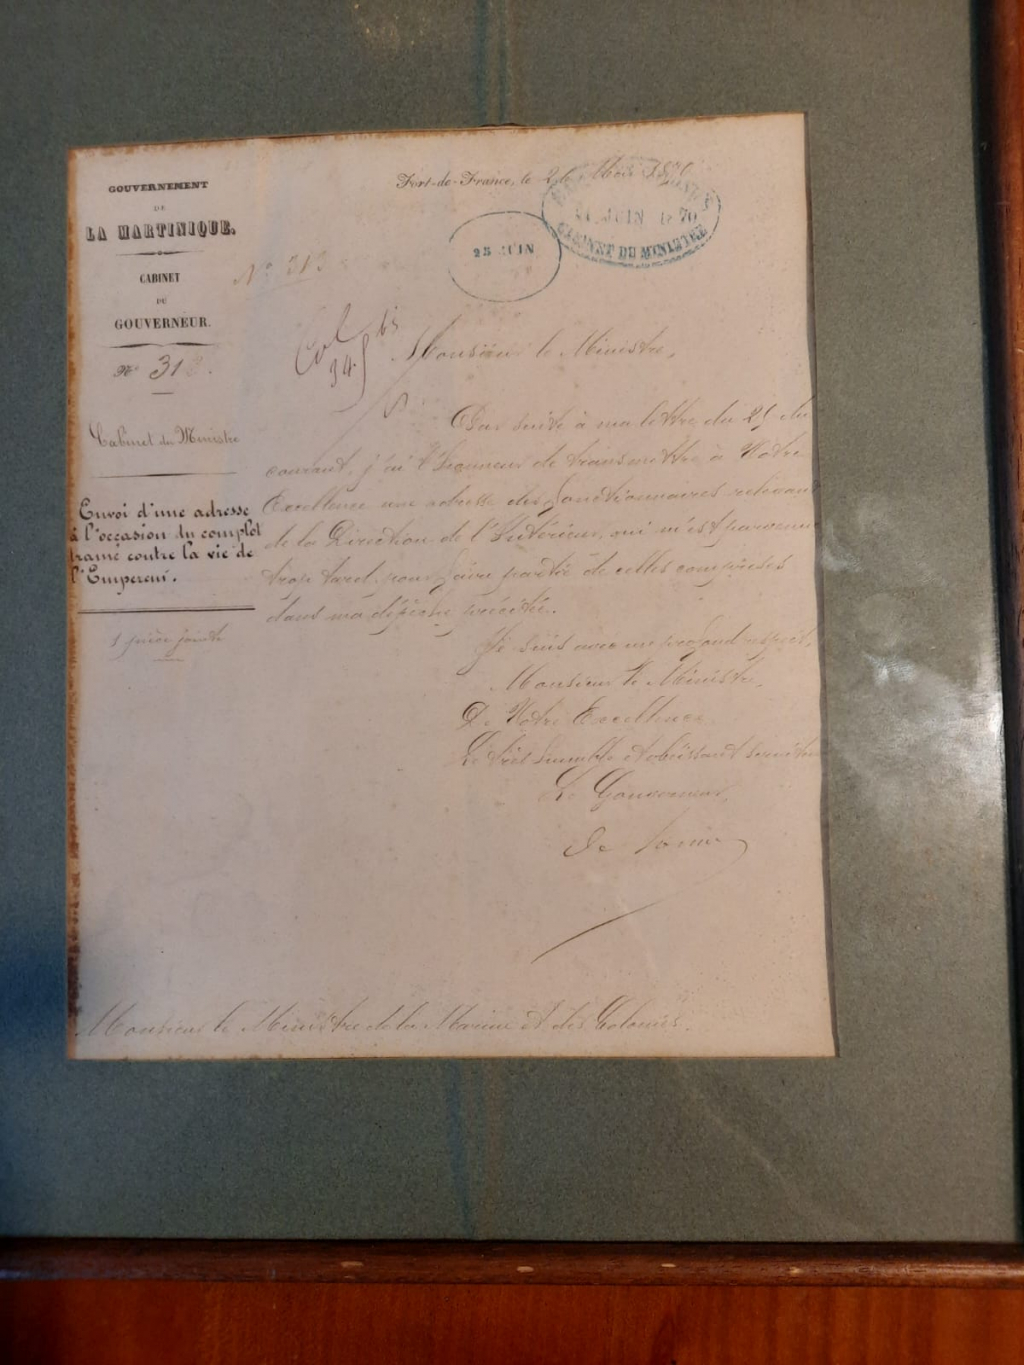 GOUVERNEMENT
DE
LA MARTINIQUE.
CABINET
DU
GOUVERNEUR.
N° 313.
Cabinet du Ministre
Envoi d'une adresse
à l'occasion du complot
tramé contre la vie de
l'Empereur.
1 pièce jointe
Fort-de-France, le 26 Mai 1870
JUIN 1870
CABINET DU MINISTRE
25 JUIN
N° 313
Col
34
Monsieur le Ministre,
Par suite à ma lettre du 25 du
courant, j'ai l'honneur de transmettre à Votre
Excellence une adresse des fonctionnaires relevant
de la Direction de l'Intérieur, qui m'est parvenue
trop tard pour faire partie de celles comprises
dans ma dépêche précitée.
Je suis avec un profond respect,
Monsieur le Ministre,
De Votre Excellence
Le très humble et obéissant serviteur
Le Gouverneur,
Monsieur le Ministre de la Marine et des Colonies.